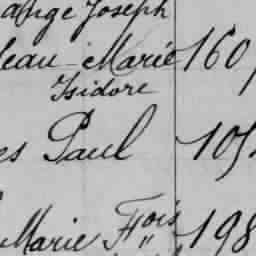 ange Joseph
leau Marie 160
Isidore
es Paul 105
Marie Fçois 198